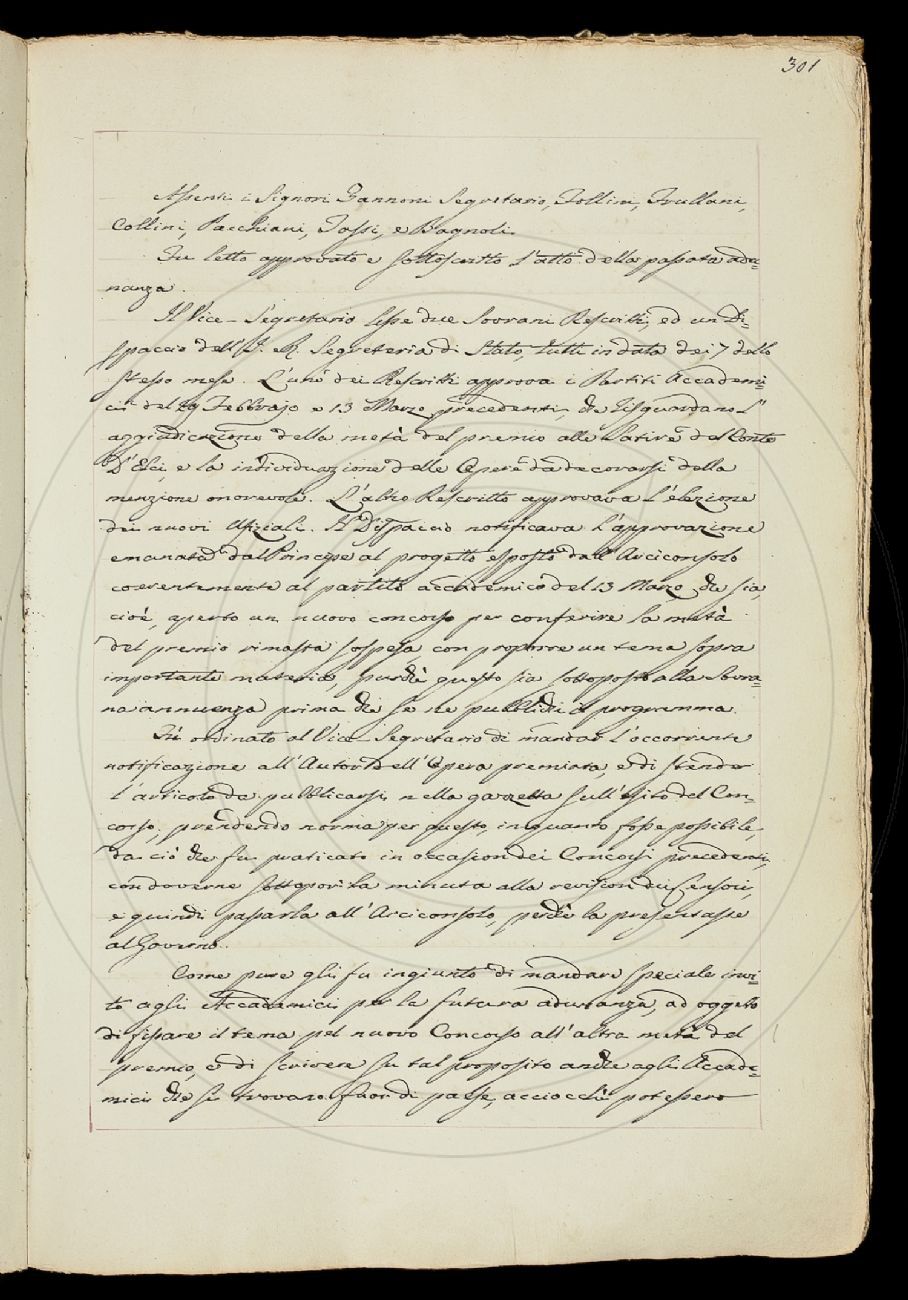 301
Assenti i Signori Zannoni Segretario, Follini, Frullani,
Collini, Pacchiani, Tassi, e Bagnoli.
Fu letto approvato e sottoscritto l'atto della passata adu=
nanza.
Il Vice-Segretario lesse due Sovrani Rescritti, ed un Di=
spaccio dell'I. e R. Segreteria di Stato, tutti in data dei 7 dello
stesso mese. L'uno dei Rescritti approva i Partiti Accademi=
ci del 29 Febbrajo e 13 Marzo precedenti, che risguardano l'
aggiudicazione della metà del premio alle Satire del Conte
D'Elci, e la individuazione delle Opere da decorarsi della
menzione onorevole. L'altro Rescritto approvava l'elezione
dei nuovi Ufiziali. Il Dispaccio notificava l'approvazione
emanata dal Principe al progetto esposto dall'Arciconsolo
coerentemente al partito accademico del 13 Marzo, che sia,
cioè, aperto un nuovo concorso per conferire la metà
del premio rimasta sospesa con proporre un tema sopra
importante materia, purchè questo sia sottoposto alla Sovra=
na annuenza prima che se ne pubblichi il programma.
Fu ordinato al Vice-Segretario di mandar l'occorrente
notificazione all'Autor dell'Opera premiata, e di stender
l'articolo da pubblicarsi nella gazzetta sull'esito del Con=
corso, prendendo norma per questo, in quanto fosse possibile,
da ciò che fu praticato in occasion dei Concorsi precedenti,
con doverne sottopor la minuta alla revision dei Censori,
e quindi passarla all'Arciconsolo, perchè la presentasse
al Governo.
Come pure gli fu ingiunto di mandare speciale invi=
to agli Accademici per la futura adunanza, ad oggetto
di fissare il tema pel nuovo Concorso all'altra metà del
premio, e di scrivere su tal proposito anche agli Accade=
mici che si trovano fuor di paese, acciocchè potessero